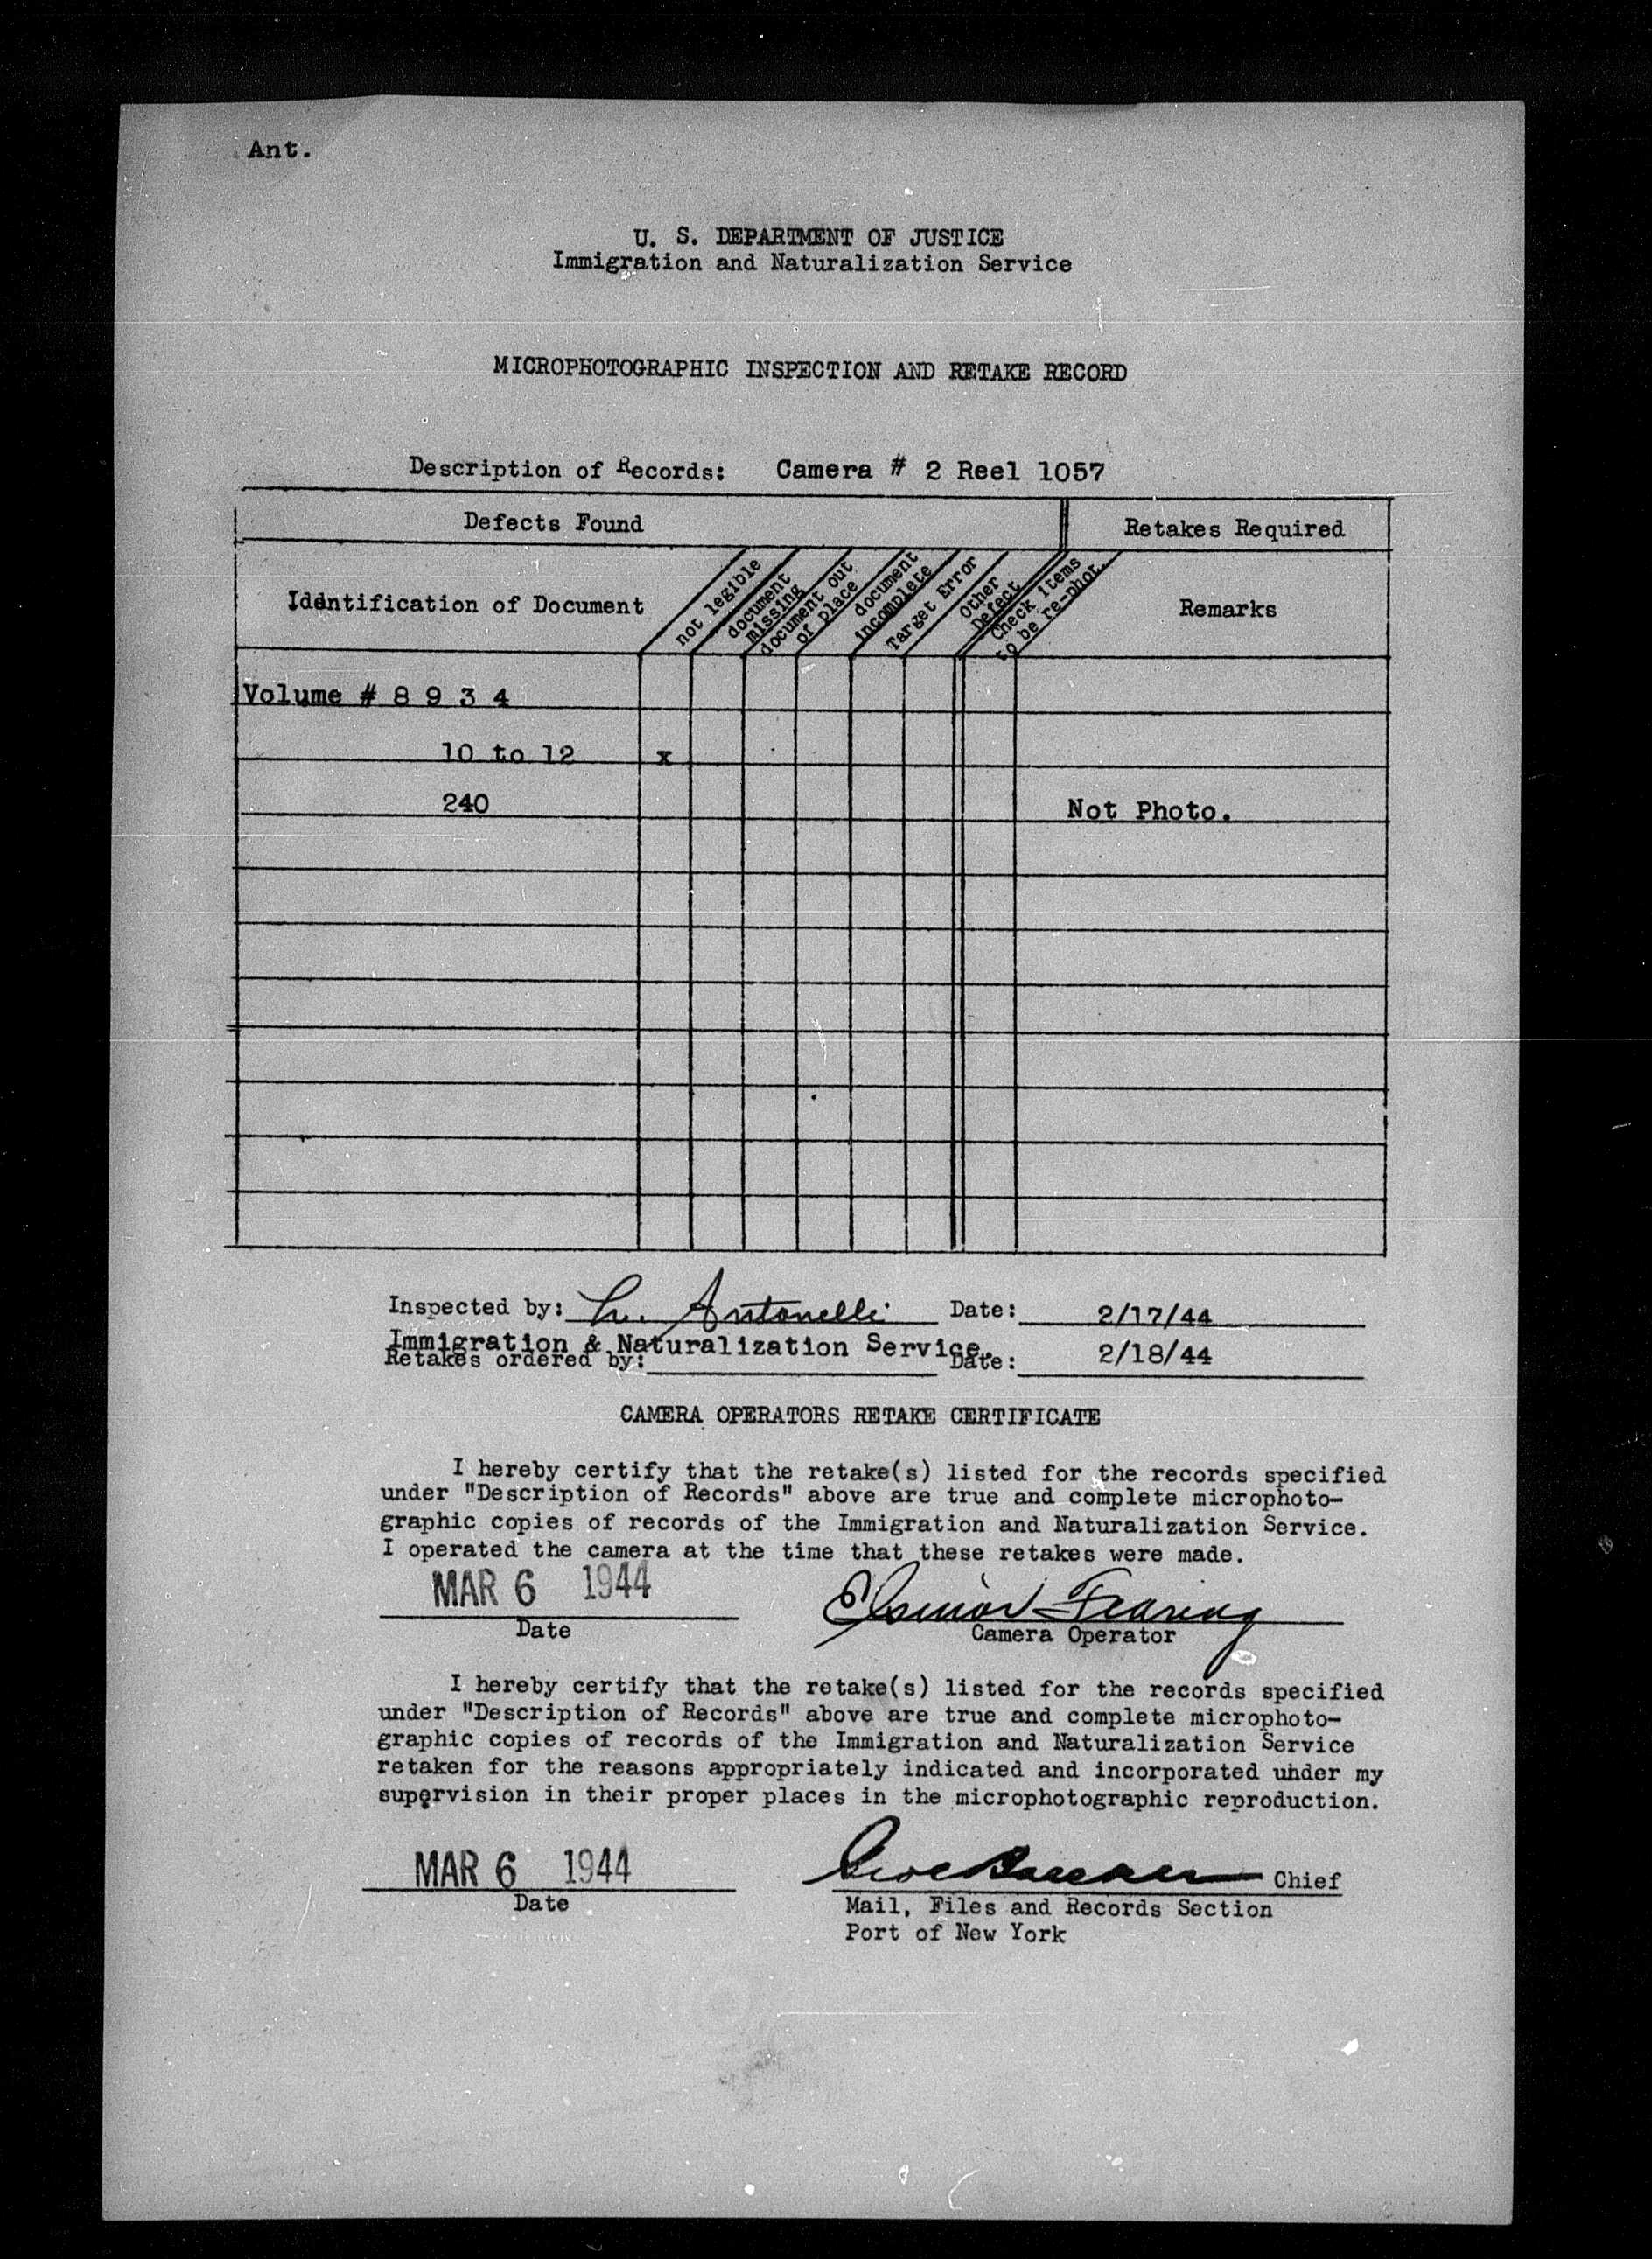 Ant.
U. S. DEPARTMENT OF JUSTICE
Immigration and Naturalization Service
MICROPHOTOGRAPHIC INSPECTION AND RETAKE RECORD
Description of Records: Camera # 2 Reel 1057
Defects Found
Retakes Required
Identification of Document
not legible
document
missing
document out
of place
document
incomplete
Target Error
Other
Defect
Check items
to be re-phot.
Remarks
Volume # 8 9 3 4
10 to 12 x
240 Not Photo.
Inspected by: Antonelli Date: 2/17/44
Immigration & Naturalization Service.
Retakes ordered by: Date: 2/18/44
CAMERA OPERATORS RETAKE CERTIFICATE
I hereby certify that the retake(s) listed for the records specified
under "Description of Records" above are true and complete microphoto-
graphic copies of records of the Immigration and Naturalization Service.
I operated the camera at the time that these retakes were made.
MAR 6 1944
Date
Camera Operator
I hereby certify that the retake(s) listed for the records specified
under "Description of Records" above are true and complete microphoto-
graphic copies of records of the Immigration and Naturalization Service
retaken for the reasons appropriately indicated and incorporated under my
supervision in their proper places in the microphotographic reproduction.
MAR 6 1944 Chief
Date
Mail, Files and Records Section
Port of New York